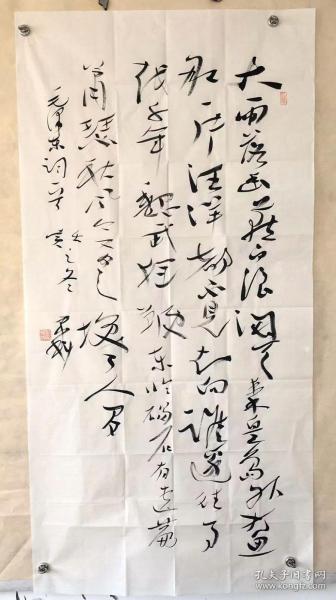 大雨落幽燕白浪滔天秦皇岛外打鱼
船一片汪洋都不见知向谁边往事
越千年魏武挥鞭东临碣石有遗篇
萧瑟秋风今又是换了人间
毛泽东词一首之冬
孔夫子旧书网